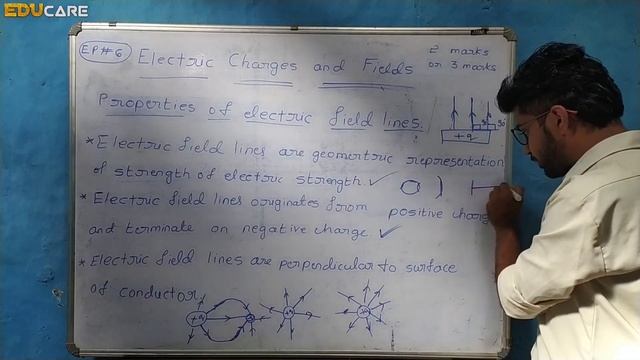 EDUCARE
EP#6
Electric Charges and Fields
2 marks
or 3 marks
Properties of electric field lines:
* Electric field lines are geometric representation
of strength of electric strength. ✓
* Electric field lines originates from positive charge
and terminate on negative charge. ✓
* Electric field lines are perpendicular to surface
of conductor.
+q
+q